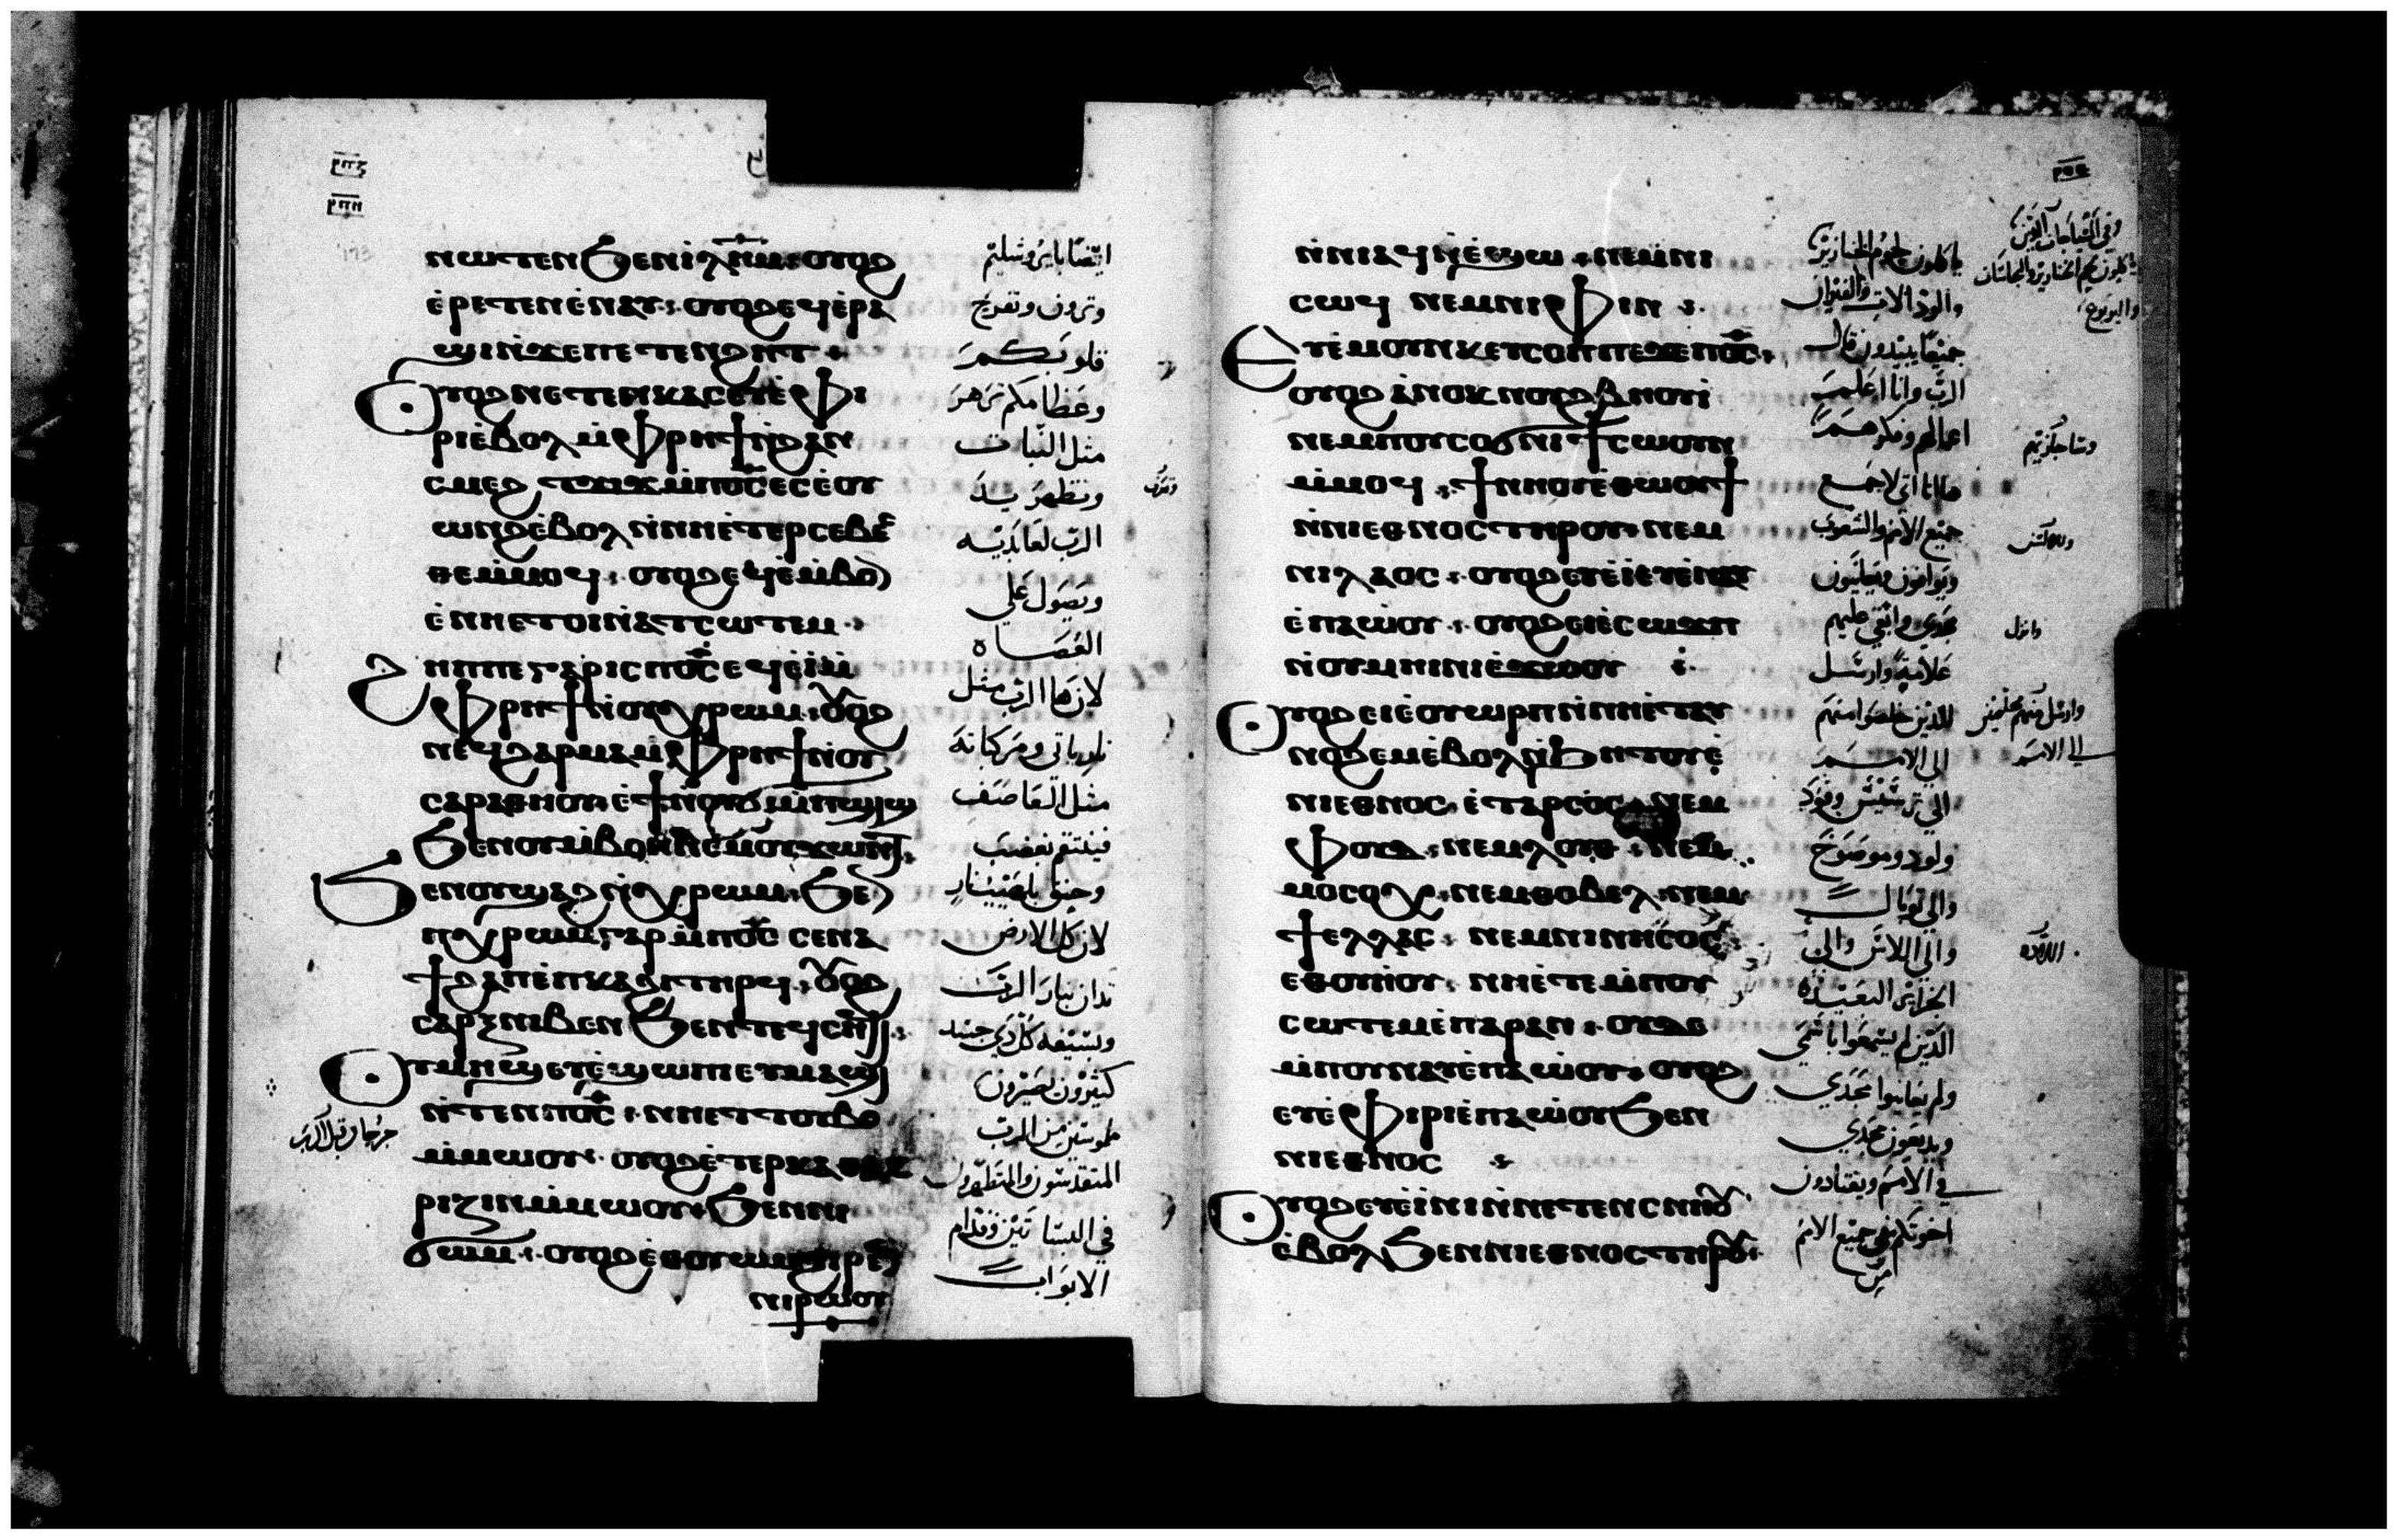 ⲣⲡⲍ
ⲣⲡⲏ
ⲛⲱⲧⲉⲛ ϧⲉⲛ ⲓ̀ⲗ̅ⲏ̅ⲙ̅ ⲟⲩⲟϩ
ⲉ̀ⲣⲉⲧⲉⲛⲉ̀ⲛⲁⲩ ⲟⲩⲟϩ ⲉϥⲉ̀ⲣⲁ
ϣⲓ ⲛ̀ϫⲉ ⲡⲉⲧⲉⲛϩⲏⲧ
Ⲟⲩⲟϩ ⲛⲉⲧⲉⲛⲕⲁⲥ ⲉⲩⲉ̀ⲫⲓ
ⲣⲓ ⲉ̀ⲃⲟⲗ ⲙ̀ⲫⲣⲏϯ ⲛ̀ϩⲁⲛ
ⲥⲙⲉϩ ⲧϫⲓϫ ⲙ̀ⲡⲟ̅ⲥ̅ ⲉⲥⲉ̀ⲟⲩ
ⲱⲛϩ ⲉ̀ⲃⲟⲗ ⲛ̀ⲛⲏⲉ̀ⲧⲉⲣⲥⲉⲃⲉ
ⲥⲑⲉ ⲙ̀ⲙⲟϥ ⲟⲩⲟϩ ⲉϥⲉ̀ⲙ̀ⲃⲟⲛ
ⲉ̀ⲛⲏⲉⲧⲟⲓ ⲛ̀ⲁⲧⲥⲱⲧⲉⲙ
Ϩⲏⲡⲡⲉ ⲅⲁⲣ ⲓⲥ ⲡⲟ̅ⲥ̅ ⲉϥⲉ̀ⲓ̀ ⲙ̀
ⲫⲣⲏϯ ⲛ̀ⲟⲩⲭⲣⲱⲙ ⲟⲩⲟϩ
ⲛⲉϥϩⲁⲣⲙⲁ ⲙ̀ⲫⲣⲏϯ ⲛ̀ⲟⲩ
ⲥⲁⲣⲁⲑⲏⲟⲩ ⲉ̀ϯ ⲛ̀ⲟⲩϭⲓⲙ̀ⲡϣⲓϣ
ϧⲉⲛ ⲟⲩⲙ̀ⲃⲟⲛ ⲛⲉⲙ ⲟⲩϫⲱⲛⲧ
ϧⲉⲛ ⲟⲩϣⲁϩ ⲛ̀ⲭⲣⲱⲙ ϧⲉⲛ
ⲡⲭⲣⲱⲙ ⲅⲁⲣ ⲙ̀ⲡⲟ̅ⲥ̅ ⲥⲉⲛⲁ
ϯϩⲁⲡ ⲉ̀ⲡⲕⲁϩⲓ ⲧⲏⲣϥ ⲟⲩⲟϩ
ⲥⲁⲣⲝ ⲛⲓⲃⲉⲛ ϧⲉⲛ ⲧⲉϥⲥⲏϥⲓ
Ⲟⲩⲙⲏϣ ⲉⲩⲉ̀ϣⲱⲡⲉ ⲉⲩⲙⲁϣϫ
ⲛ̀ⲧⲉⲛ ⲡⲟ̅ⲥ̅ ⲛⲏⲉⲧⲧⲟⲩⲃⲟ
ⲙ̀ⲙⲱⲟⲩ ⲟⲩⲟϩ ⲉ̀ⲧⲉⲣⲕⲁⲑⲁ
ⲣⲓⲍⲓⲛ ⲙ̀ⲙⲱⲟⲩ ϧⲉⲛ ⲛⲓ
ϭⲱⲙ ⲟⲩⲟϩ ⲉ̀ⲑⲟⲩⲱⲙ ϧⲓⲣⲉⲛ
ⲛⲓⲣⲱⲟⲩ
ايضا بايروشليم
وترون وتفرح
قلوبكم
وعظامكم تزهر
مثل النبات
وتظهر يد
الرب لعابديه
ويصول علي
العصاه
لان ها الرب مثل
نار ياتي ومركباته
مثل العاصف
فينتقم بغضب
وحنق بلهيب نار
لان كل الارض
تدان بنار الرب
وبسيفه كل ذي جسد
كثيرون يصيرون
مطعونين من الرب
المتقدسون والمتطهرون
في البساتين وقدام
الابواب
ⲛ̀ⲛⲓⲁϥ ⲛ̀ⲉ̀ϣⲱ ⲛⲉⲙ ⲛⲓ
ⲥⲱϥ ⲛⲉⲙ ⲛⲓⲫⲓⲛ
Ⲉⲩⲉ̀ⲙⲟⲩⲛⲕ ⲉⲩⲥⲟⲡ ⲡⲉϫⲉ ⲡⲟ̅ⲥ̅
ⲟⲩⲟϩ ⲁ̀ⲛⲟⲕ ⲛⲟⲩϩⲃⲏⲟⲩⲓ̀
ⲛⲉⲙ ⲡⲟⲩⲥⲟϭⲛⲓ ϯⲥⲱⲟⲩⲛ
ⲙ̀ⲙⲟϥ ϯⲛⲏⲟⲩ ⲉ̀ⲑⲱⲟⲩϯ
ⲛ̀ⲛⲓⲉⲑⲛⲟⲥ ⲧⲏⲣⲟⲩ ⲛⲉⲙ
ⲛⲓⲗⲁⲟⲥ ⲟⲩⲟϩ ⲉⲩⲉ̀ⲓ̀ ⲉⲩⲉ̀ⲛⲁⲩ
ⲉ̀ⲡⲁⲱ̀ⲟⲩ ⲟⲩⲟϩ ⲉⲓⲉ̀ⲥⲱϫⲡ
ⲛ̀ⲟⲩⲙⲏⲓⲛⲓ ⲉ̀ϫⲱⲟⲩ
Ⲟⲩⲟϩ ⲉⲓⲉ̀ⲟⲩⲱⲣⲡ ⲛ̀ⲛⲏⲉ̀ⲧⲁⲩ
ⲛⲟϩⲉⲙ ⲉ̀ⲃⲟⲗ ⲛ̀ϧⲏⲧⲟⲩ ⲉ̀
ⲛⲓⲉⲑⲛⲟⲥ ⲉ̀ⲧⲁⲣⲥⲟⲥ ⲛⲉⲙ
ⲫⲟⲩⲇ ⲛⲉⲙ ⲗⲟⲩⲇ ⲛⲉⲙ
ⲙⲟⲥⲟⲭ ⲛⲉⲙ ⲑⲟⲃⲉⲗ ⲛⲉⲙ
ϯⲉⲗⲗⲁⲥ ⲛⲉⲙ ⲛⲓⲛⲏⲥⲟⲥ
ⲉⲑⲟⲩⲏⲟⲩ ⲛⲏⲉ̀ⲧⲉ ⲙ̀ⲡⲟⲩ
ⲥⲱⲧⲉⲙ ⲉ̀ⲡⲁⲣⲁⲛ ⲟⲩⲇⲉ
ⲙ̀ⲡⲟⲩⲛⲁⲩ ⲉ̀ⲡⲁⲱ̀ⲟⲩ ⲟⲩⲟϩ
ⲉⲩⲉ̀ⲫⲓⲣⲓ ⲉ̀ⲡⲁⲱ̀ⲟⲩ ϧⲉⲛ
ⲛⲓⲉⲑⲛⲟⲥ
Ⲟⲩⲟϩ ⲉⲩⲉ̀ⲓ̀ⲛⲓ ⲛ̀ⲛⲉⲧⲉⲛⲥⲛⲏⲟⲩ
ⲉ̀ⲃⲟⲗ ϧⲉⲛ ⲛⲓⲉⲑⲛⲟⲥ ⲧⲏⲣⲟⲩ
ياكلون لحوم الخنازير
والورل الاب والفيران
جميعا يبيدون قال
الرب وانا اعلم
اعمالهم وفكرهم
هاانا اتي لاجمع
جميع الامم والشعوب
ويوافون ويعاينون
مجدي وابقي عليهم
علامة وارسل
للذين خلصوا منهم
الي الامم
الي ترسيس وفود
ولود وموصوخ
والي ثوبال
والي اللاس والي
الجزاير البعيده
الذين لم يسمعوا باسمي
ولم يعاينوا مجدي
ويذيعون مجدي
في الامم ويقتادون
اخوتكم من جميع الامم
وارسل منهم مخلصين
الي الامم